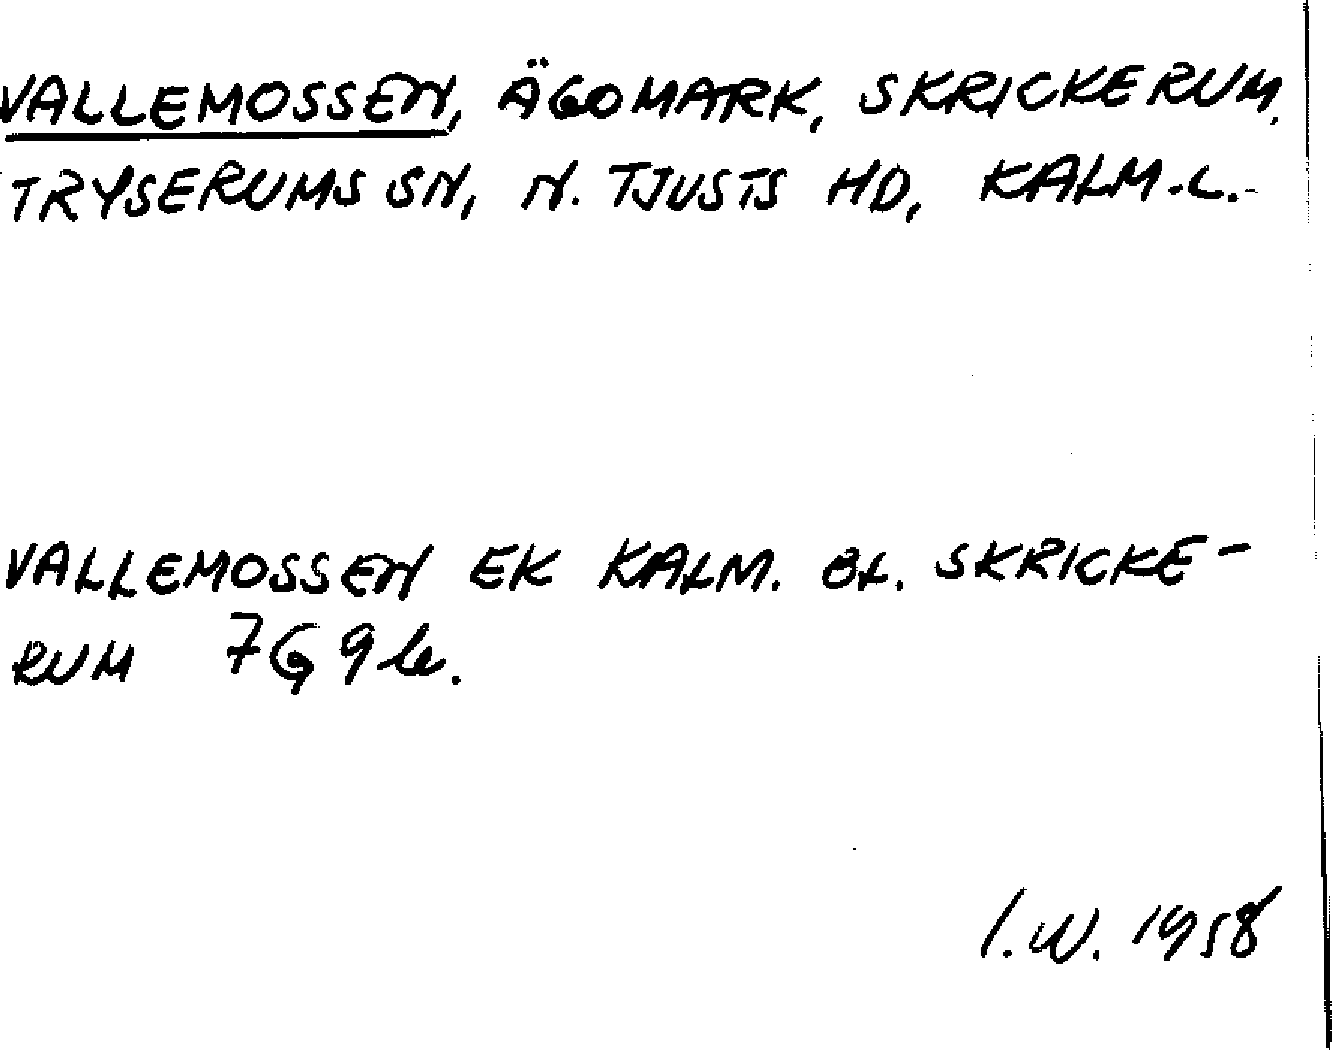 VALLEMOSSEN, ÄGOMARK, SKRICKERUM,
TRYSERUMS SN, N. TJUSTS HD, KALM.L.
VALLEMOSSEN EK KALM. BL. SKRICKE-
RUM 7G 9 le.
I.W. 1958